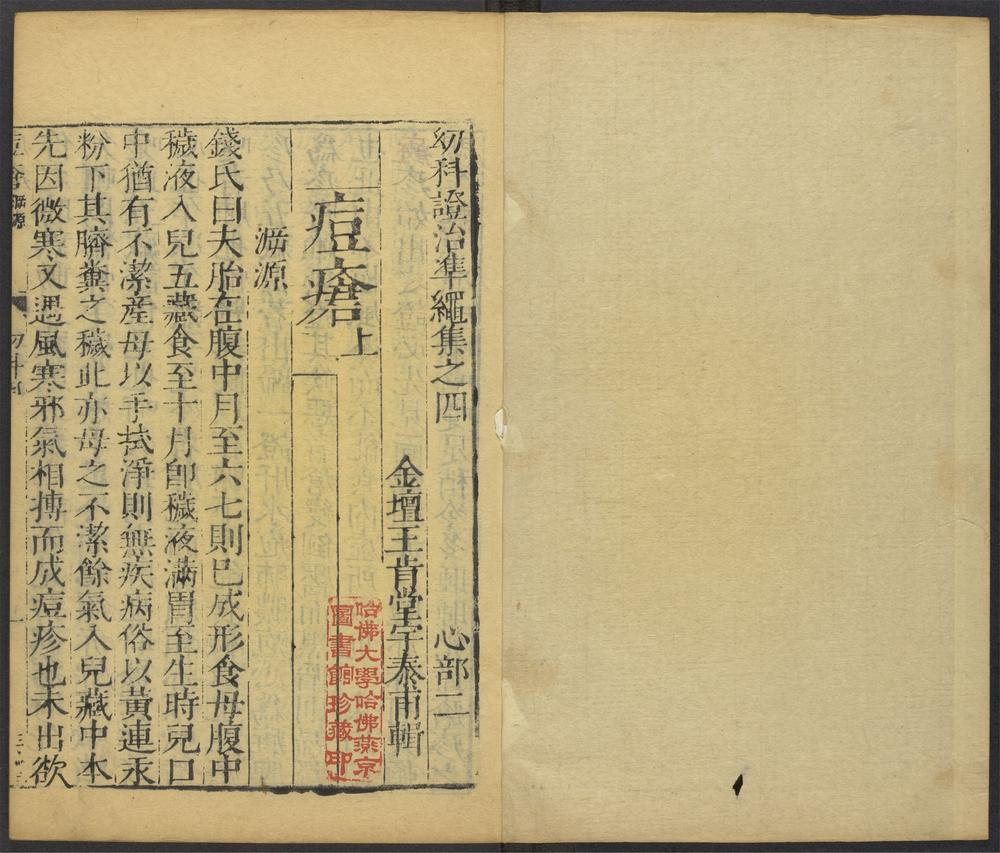 幼科證治準繩集之四　心部二
金壇王肯堂宇泰甫輯
痘瘡上
溯源
錢氏曰夫胎在腹中月至六七則已成形食母腹中
穢液入兒五藏食至十月卽穢液滿胃至生時兒口
中猶有不潔産母以手拭淨則無疾病俗以黃連汞
粉下其臍糞之穢此亦母之不潔餘氣入兒藏中本
先因微寒又遇風寒邪氣相搏而成痘疹也未出欲
哈佛大學哈佛燕京
圖書館珍藏印